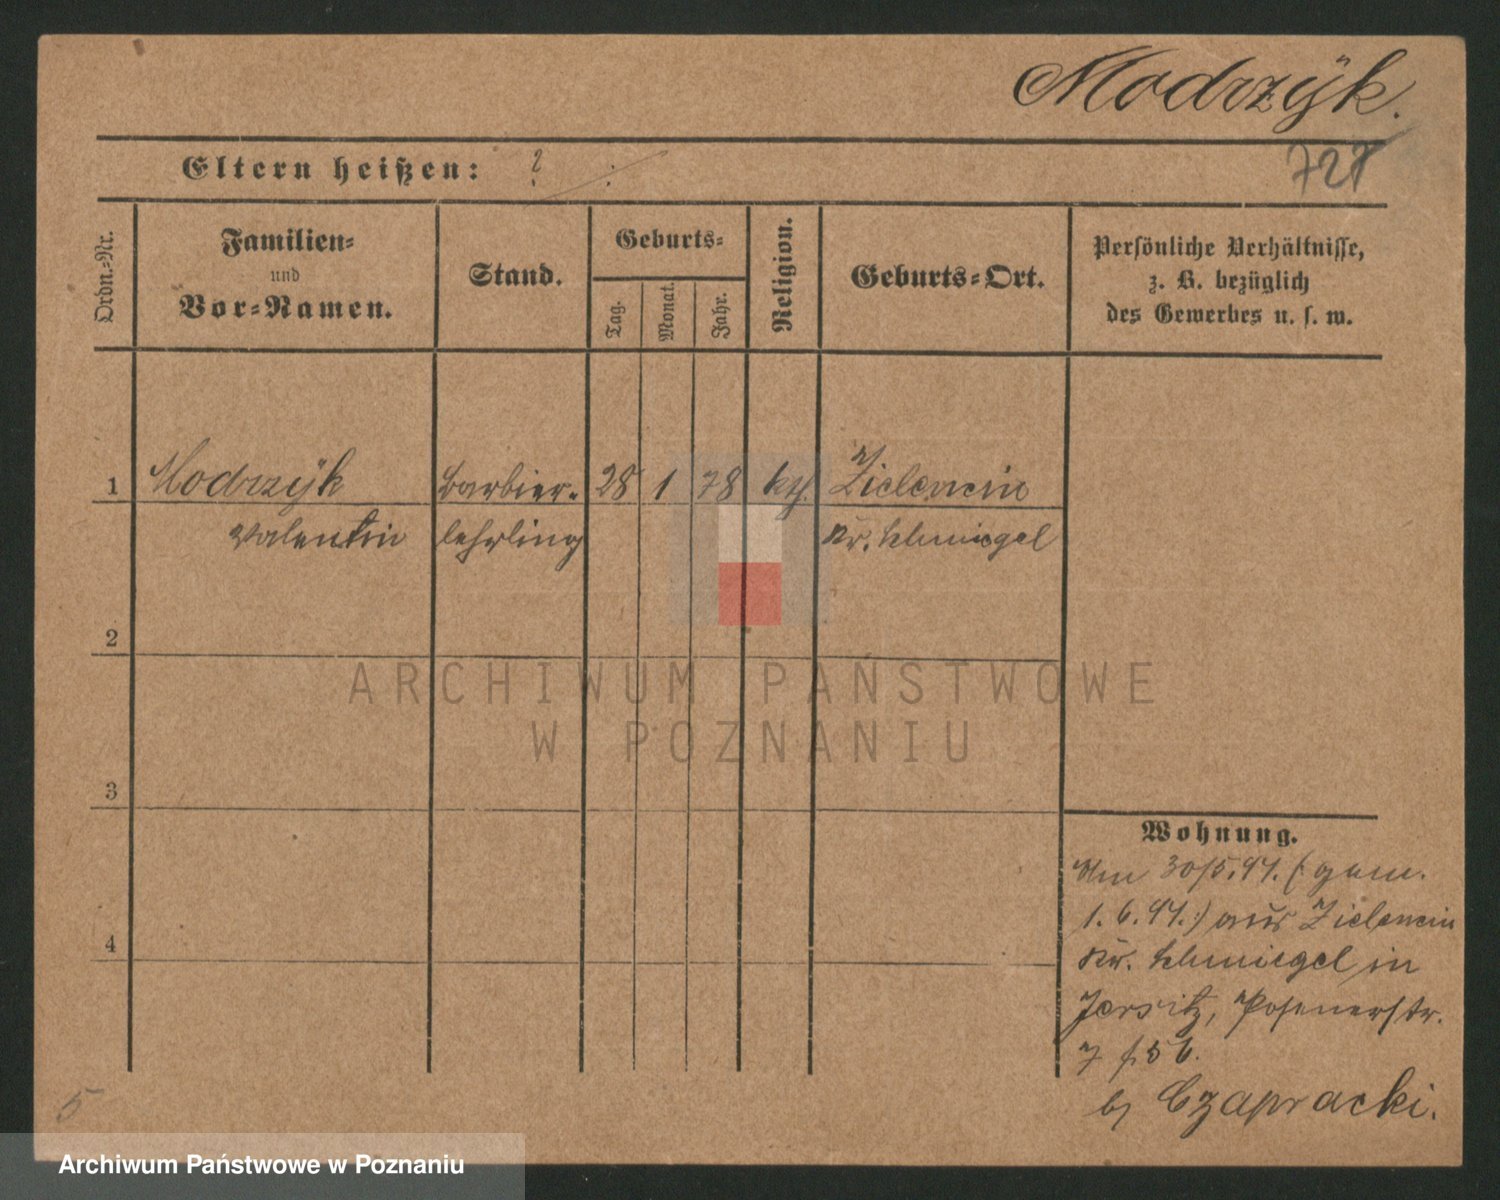 Modrzÿk.
727
Eltern heißen: ?
Ordn.-Nr.
Familien-
und
Vor-Namen.
Stand.
Geburts-
Tag.
Monat.
Jahr.
Religion.
Geburts-Ort.
Persönliche Verhältnisse,
z. B. bezüglich
des Gewerbes u. s. w.
1 Modrzÿk Barbier- 28 1 78 kth. Zielencin
Valentin lehrling Kr. Schmiegel
2
ARCHIWUM PAŃSTWOWE
W POZNANIU
3
Wohnung.
Am 30/5.94. (gem.
1.6.94.) aus Zielencin
4
Kr. Schmiegel in
Jersitz, Posenerstr.
7
b/ Czapracki.
5
Archiwum Państwowe w Poznaniu